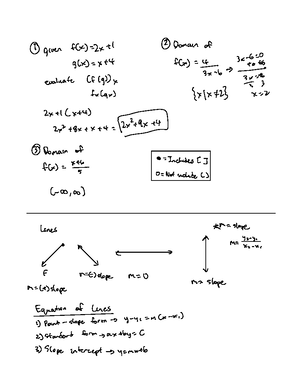 ① given f(x)=2x+1
g(x)=x+4
evaluate (f(g))x
2x+1(x+4)
2x²+8x+x+4 = 2x²+9x+4
② Domain of
f(x)= 4/3x-6 → 3x-6=0
+6 +6
x=2
{x|x≠2}
③ Domain of
f(x)= x+6/5
(-∞,∞)
●=Includes [ ]
O=Not include ( )
Lines
m=(+)slope
m=(-)slope
m=0
*m=slope
m= y₂-y₁/x₂-x₁
slope
Equation of Lines
1) Point-slope form → y-y₁=m(x-x₁)
2) Standard form → ax+by=C
3) Slope intercept → y=mx+b